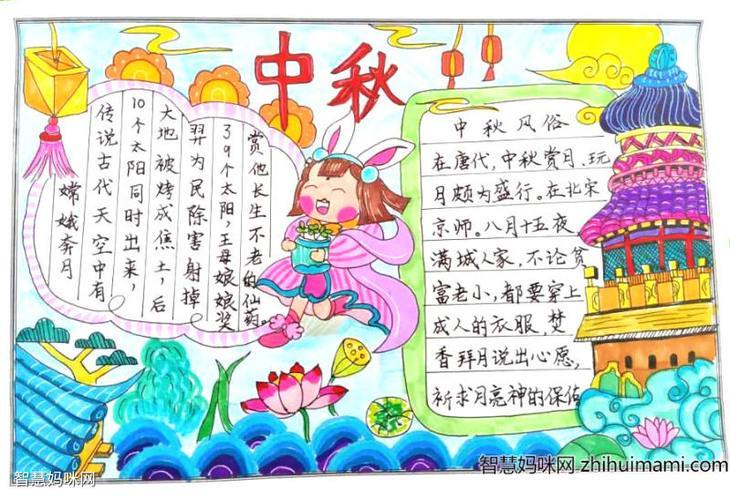 中秋
嫦娥奔月
传说古代天空中有
10个太阳同时出来,
大地被烤成焦土,后
羿为民除害射掉
了9个太阳,王母娘娘奖
赏他长生不老的仙药。
中秋风俗
在唐代,中秋赏月、玩
月颇为盛行。在北宋
京师。八月十五夜
满城人家,不论贫
富老小,都要穿上
成人的衣服,焚
香拜月说出心愿,
祈求月亮神的保佑
智慧妈咪网
智慧妈咪网 zhihuimami.com